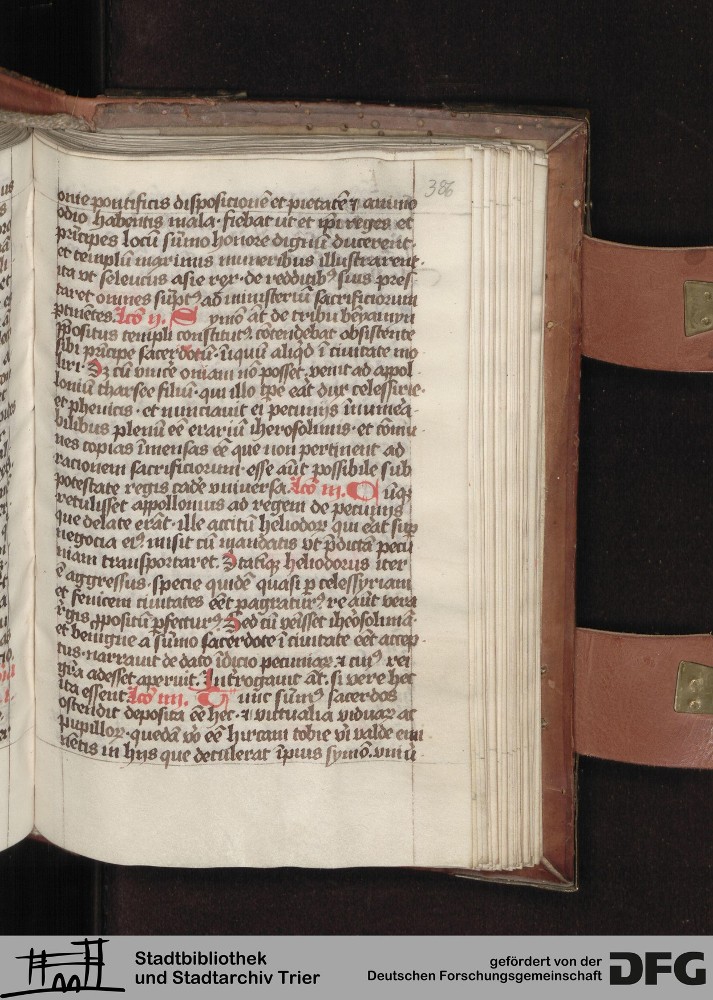 386
onie pontificis dispositionē et pietatē ⁊ animo
odio habentis mala · fiebat ut et ip̄i reges et
prīcipes locū sūmo honore dignū ducerent ·
et templū maximis muneribus illustrarent ·
ita vt seleucus asie rex · de redditibꝰ suis pres
taret omnes sūptꝰ ad ministeriū sacrificiorum
ꝑtinētes. Lc̄o ij. Symō aūt de tribu beniamyn
p̄positus templi constitutꝰ cōtendebat obsistente
sibi prīcipe sacerdotū · iniquū aliqd̄ ī ciuitate mo
liri · Sꝫ cū vincē oniam nō posset · venit ad appol
loniū tharsee filiū · qui illo tp̄e erāt dux celessirie ·
et phenicis · et nunciauit ei pecuniis īnumēa
bilibus plenū eē erariū iherosolimis · et cōmu
nes copias īmensas eē que non pertinent ad
rationem sacrificiorum · esse aūt possibile sub
potestate regis cadē vniuersa. Lc̄o iij. Cūqꝫ
retulisset appollonius ad regem de pecuniis
que delate erāt · ille accitū heliodorꝫ qui erāt sup̄
negocia eiꝰ misit cū mandatis vt p̄dictā pecū
niam transportaret. Statīqꝫ heliodorus iter
ē aggressus · specie quidē quasi ꝑ celessyriam
et fenicem ciuitates eēt ꝑagraturꝰ re aūt vera
regis ꝓpositū ꝑfecturꝰ Sed cū veīsset iherosolimā ·
et benigne a sūmo sacerdote ī ciuitate eēt accep
tus · narrauit de dato īdicio pecuniaꝝ ⁊ cuiꝰ rei
grā adesset aperuit. Introgauit aūt · si vere hec
ita essent Lc̄o iiij. Tunc sūmꝰ sacerdos
ostendit deposita eē hec · ⁊ victualia viduaꝝ ac
pupilloꝝ · quedā vō eē hircani tobie vi valde emi
nētis in hiis que detulerat īpius symō · vniū
Stadtbibliothek
und Stadtarchiv Trier
gefördert von der
Deutschen Forschungsgemeinschaft
DFG